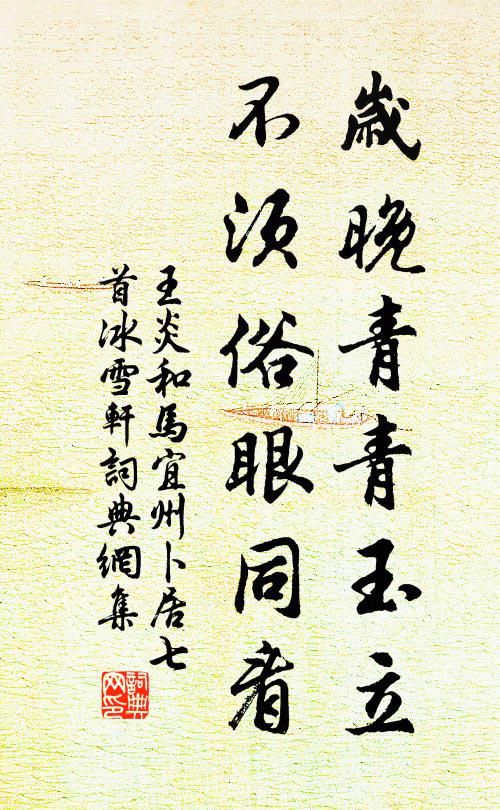 歲晚青青玉立
不須俗眼同看
王炎和馬宜州卜居七
首冰雪軒詞典網集
詞典
网印